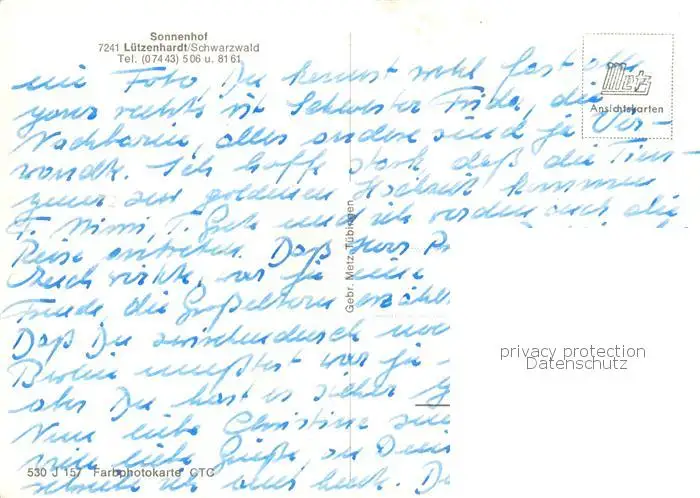 Sonnenhof
7241 Lützenhardt/Schwarzwald
Tel. (07443) 506 u. 8161
Metz
Ansichtskarten
ein Foto Du kennst wohl fast alle
ganz rechts ist Schwester Frida, die
Nachbarin, alles andere sind ja Ver-
wandte. Ich hoffe stark daß die
zur goldenen Hochzeit kommen
T. Mimi, T. und ich werden auch die
Reise antreten. Daß Herr
Euch rückte, war ja eine
Freude, die Großeltern erzähl
Daß Du zwischendurch
Berlin mußtest war ja
aber Du hast es sicher
Nun liebe Christine
viele liebe Grüße, an
Gebr. Metz, Tübingen
privacy protection
Datenschutz
530 J 157 Farbphotokarte CTC